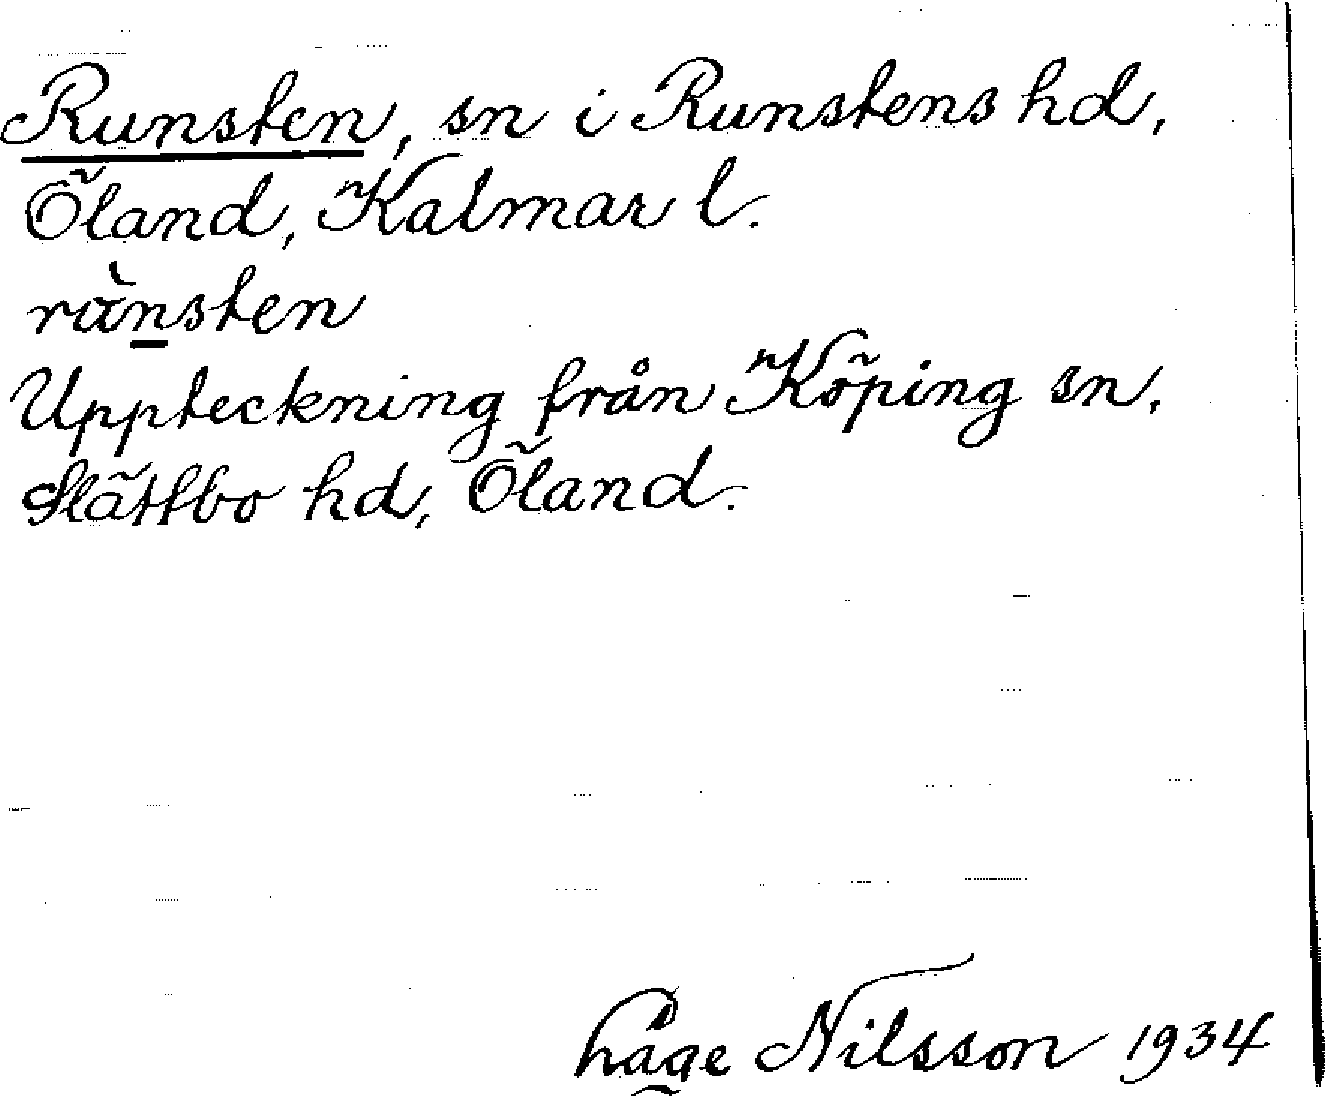 Runsten, sn i Runstens hd,
Öland, Kalmar l.
rànsten
Uppteckning från Köping sn.
Slättbo hd, Öland.
Håge Nilsson 1934